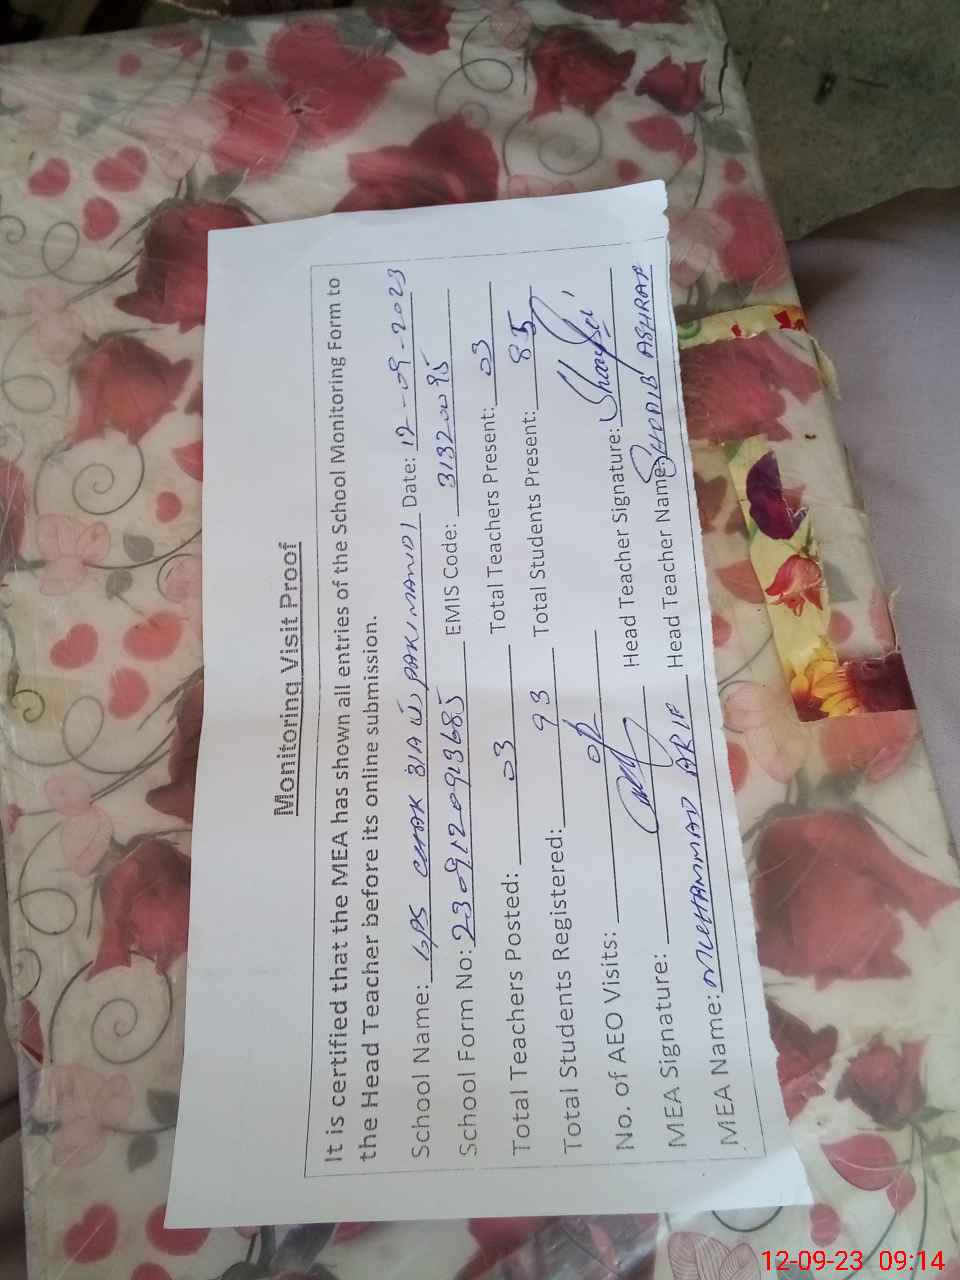 Monitoring Visit Proof
It is certified that the MEA has shown all entries of the School Monitoring Form to
the Head Teacher before its online submission.
School Name: GPS CHAK 81A PAKI MANDI Date: 12-09-2023
School Form No: 230912093685 EMIS Code: 31320095
Total Teachers Posted: 03 Total Teachers Present: 03
Total Students Registered: 93 Total Students Present: 85
No. of AEO Visits:
MEA Signature: Head Teacher Signature:
MEA Name: MUHAMMAD ARIF Head Teacher Name: SHOAIB ASHRAF
12-09-23 09:14